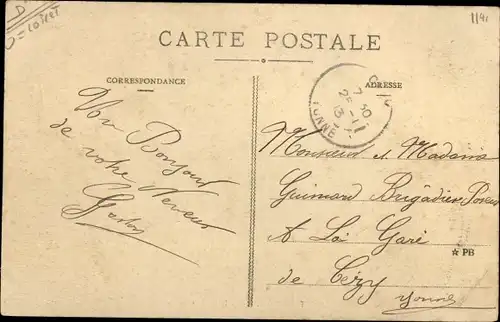 D
D = LOIRET
1191
CARTE POSTALE
CORRESPONDANCE
ADRESSE
7 30
25 - 11
13
YONNE
Bonjour
de votre Neveu
Gaston
Monsieur et Madame
Guimard Brigadier Poseur
A La Gare
de Cézy
Yonne
★ PB